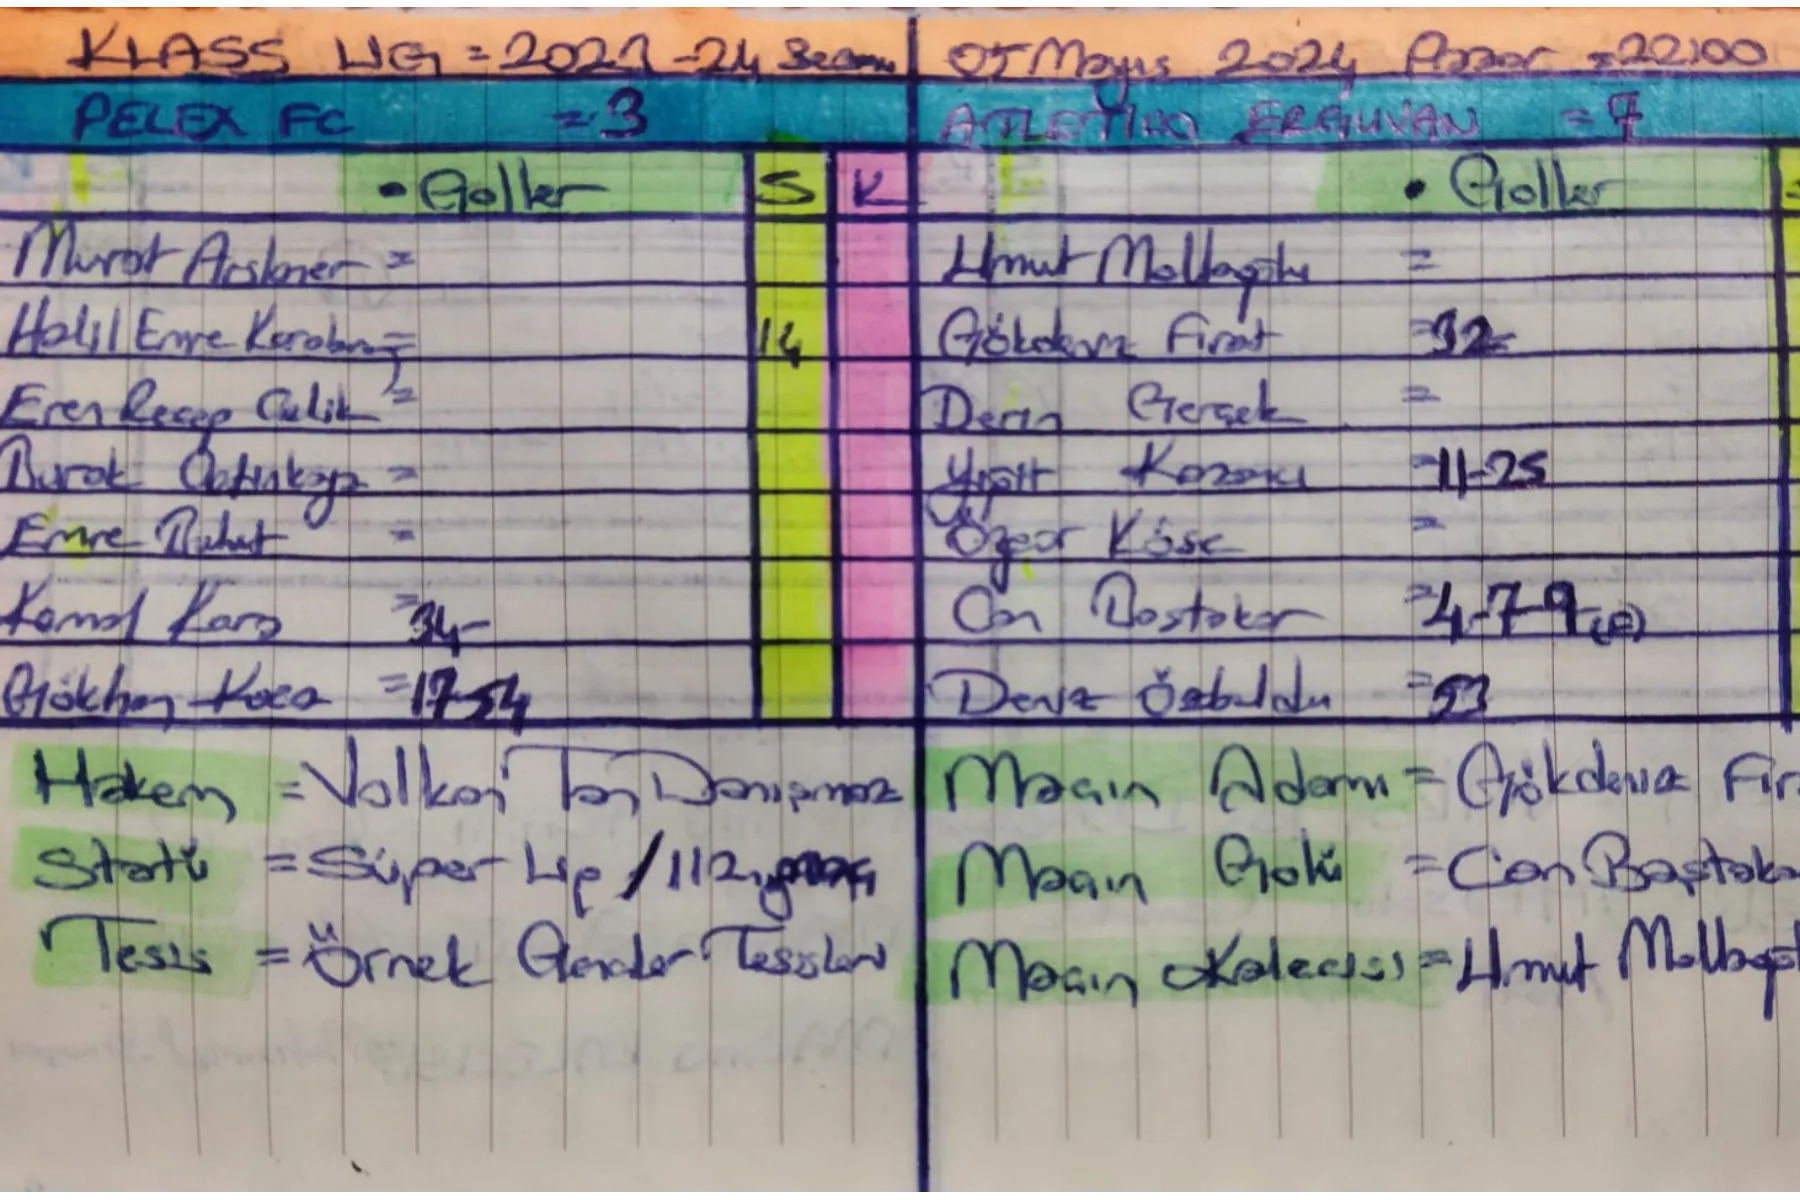 KLASS LİG = 2023-24 Sezonu
05 Mayıs 2024 Pazar = 22:00
PELEX FC = 3
ATLETİKO ERGUVAN = 7
• Goller S K
• Goller
Murat Arslaner =
Umut Mollaoğlu =
Halil Emre Karabaş = 14
Gökdeniz Fırat = 32-
Eren Recep Çelik =
Derin Gerçek =
Burak Çetinkaya =
Yiğit Kazancı = 11-25
Emre Bulut =
Özgür Köse =
Kemal Kara = 34-
Can Bostakar = 4-7-9 (P)
Gökhan Koca = 17-54
Deniz Özbuldu = 53
Hakem = Volkan Tan Danışmaz
Statü = Süper Lig / 112.
Tesis = Örnek Gençler Tesisleri
Maçın Adamı = Gökdeniz Fır
Maçın Golü = Can Baştaka
Maçın Kalecisi = Umut Mollaoğl